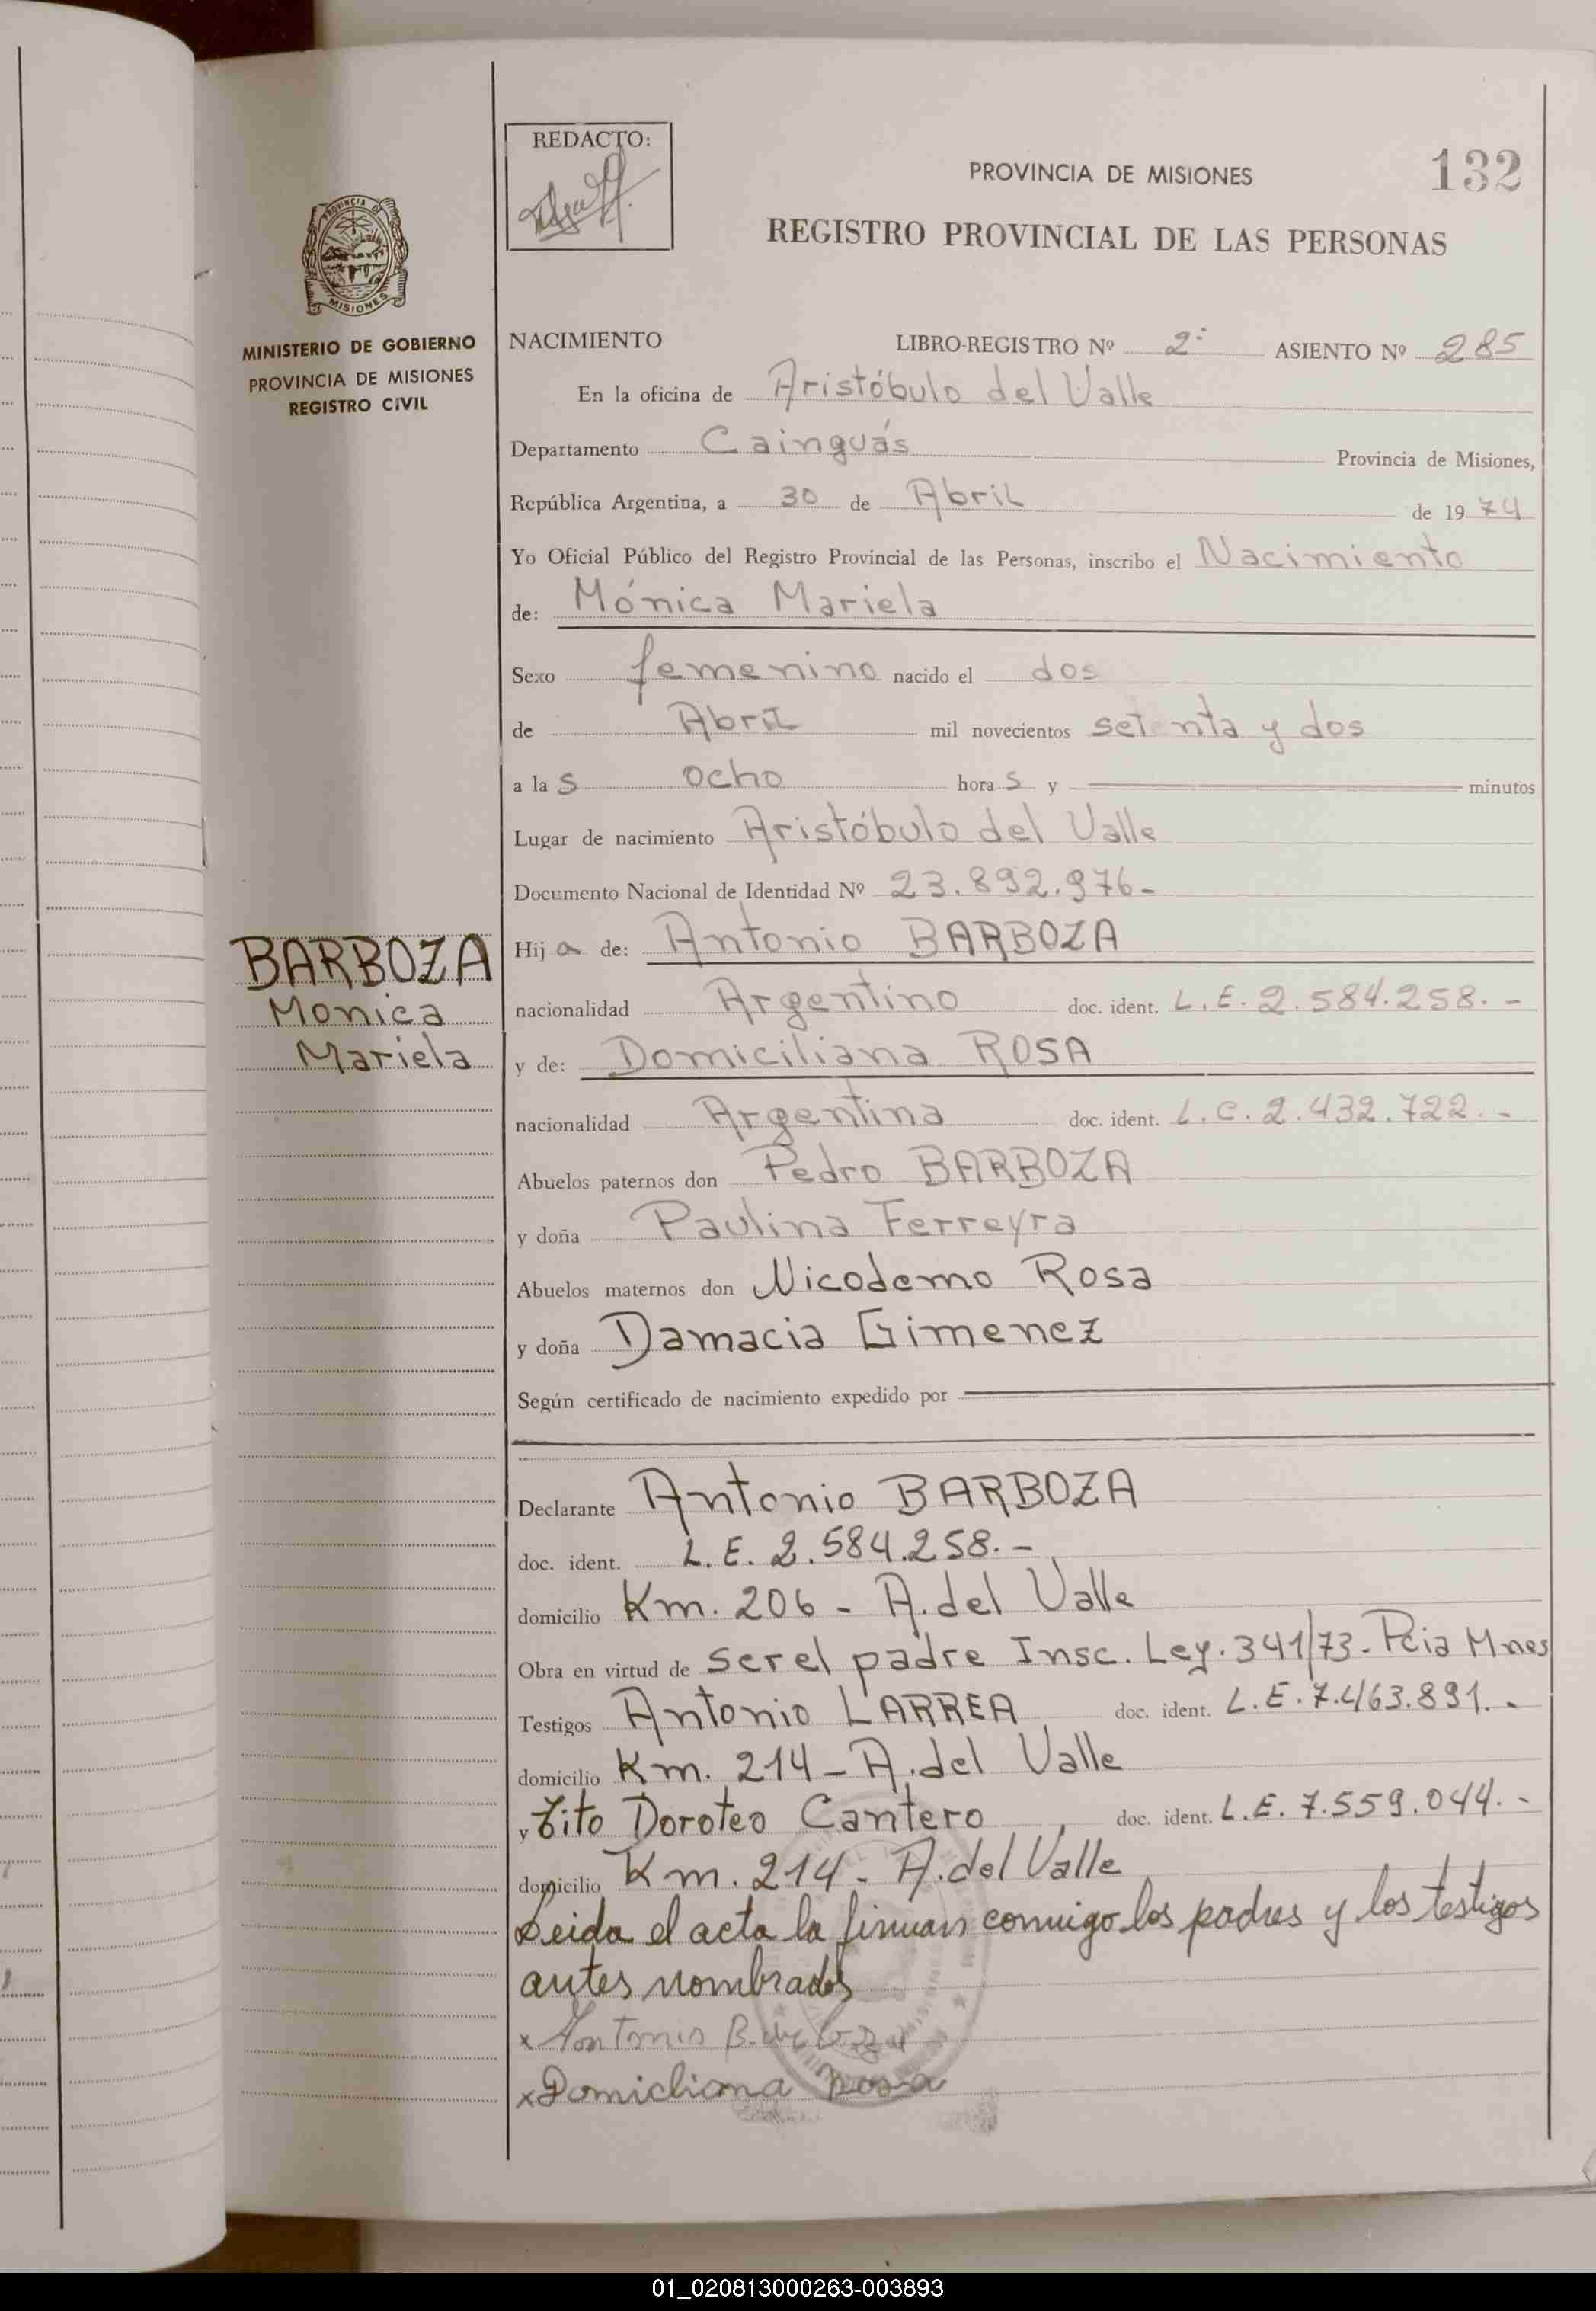 REDACTO:
PROVINCIA DE MISIONES
132
REGISTRO PROVINCIAL DE LAS PERSONAS
PROVINCIA DE
MISIONES
MINISTERIO DE GOBIERNO
PROVINCIA DE MISIONES
REGISTRO CIVIL
NACIMIENTO LIBRO-REGISTRO Nº 2º ASIENTO Nº 285
En la oficina de Aristóbulo del Valle
Departamento Cainguás Provincia de Misiones,
República Argentina, a 30 de Abril de 1974
Yo Oficial Público del Registro Provincial de las Personas, inscribo el Nacimiento
de: Mónica Mariela
Sexo femenino nacido el dos
de Abril mil novecientos setenta y dos
a las ocho horas y minutos
Lugar de nacimiento Aristóbulo del Valle
Documento Nacional de Identidad Nº 23.892.976-
BARBOZA
Monica
Mariela
Hija de: Antonio BARBOZA
nacionalidad Argentino doc. ident. L.E. 2.584.258.-
y de: Domiciliana ROSA
nacionalidad Argentina doc. ident. L.C. 2.432.722.-
Abuelos paternos don Pedro BARBOZA
y doña Paulina Ferreyra
Abuelos maternos don Nicodemo Rosa
y doña Damacia Gimenez
Según certificado de nacimiento expedido por
Declarante Antonio BARBOZA
doc. ident. L.E. 2.584.258.-
domicilio Km. 206 - A. del Valle
Obra en virtud de ser el padre Insc. Ley. 341/73- Pcia Mnes
Testigos Antonio LARREA doc. ident. L.E. 7.463.891.-
domicilio Km. 214 - A. del Valle
y Tito Doroteo Cantero doc. ident. L.E. 7.559.044.-
domicilio Km. 214 - A. del Valle
Leida el acta la firman conmigo los padres y los testigos
antes nombrados
x Antonio Barboza
x Domicliana Rosa
01_020813000263-003893